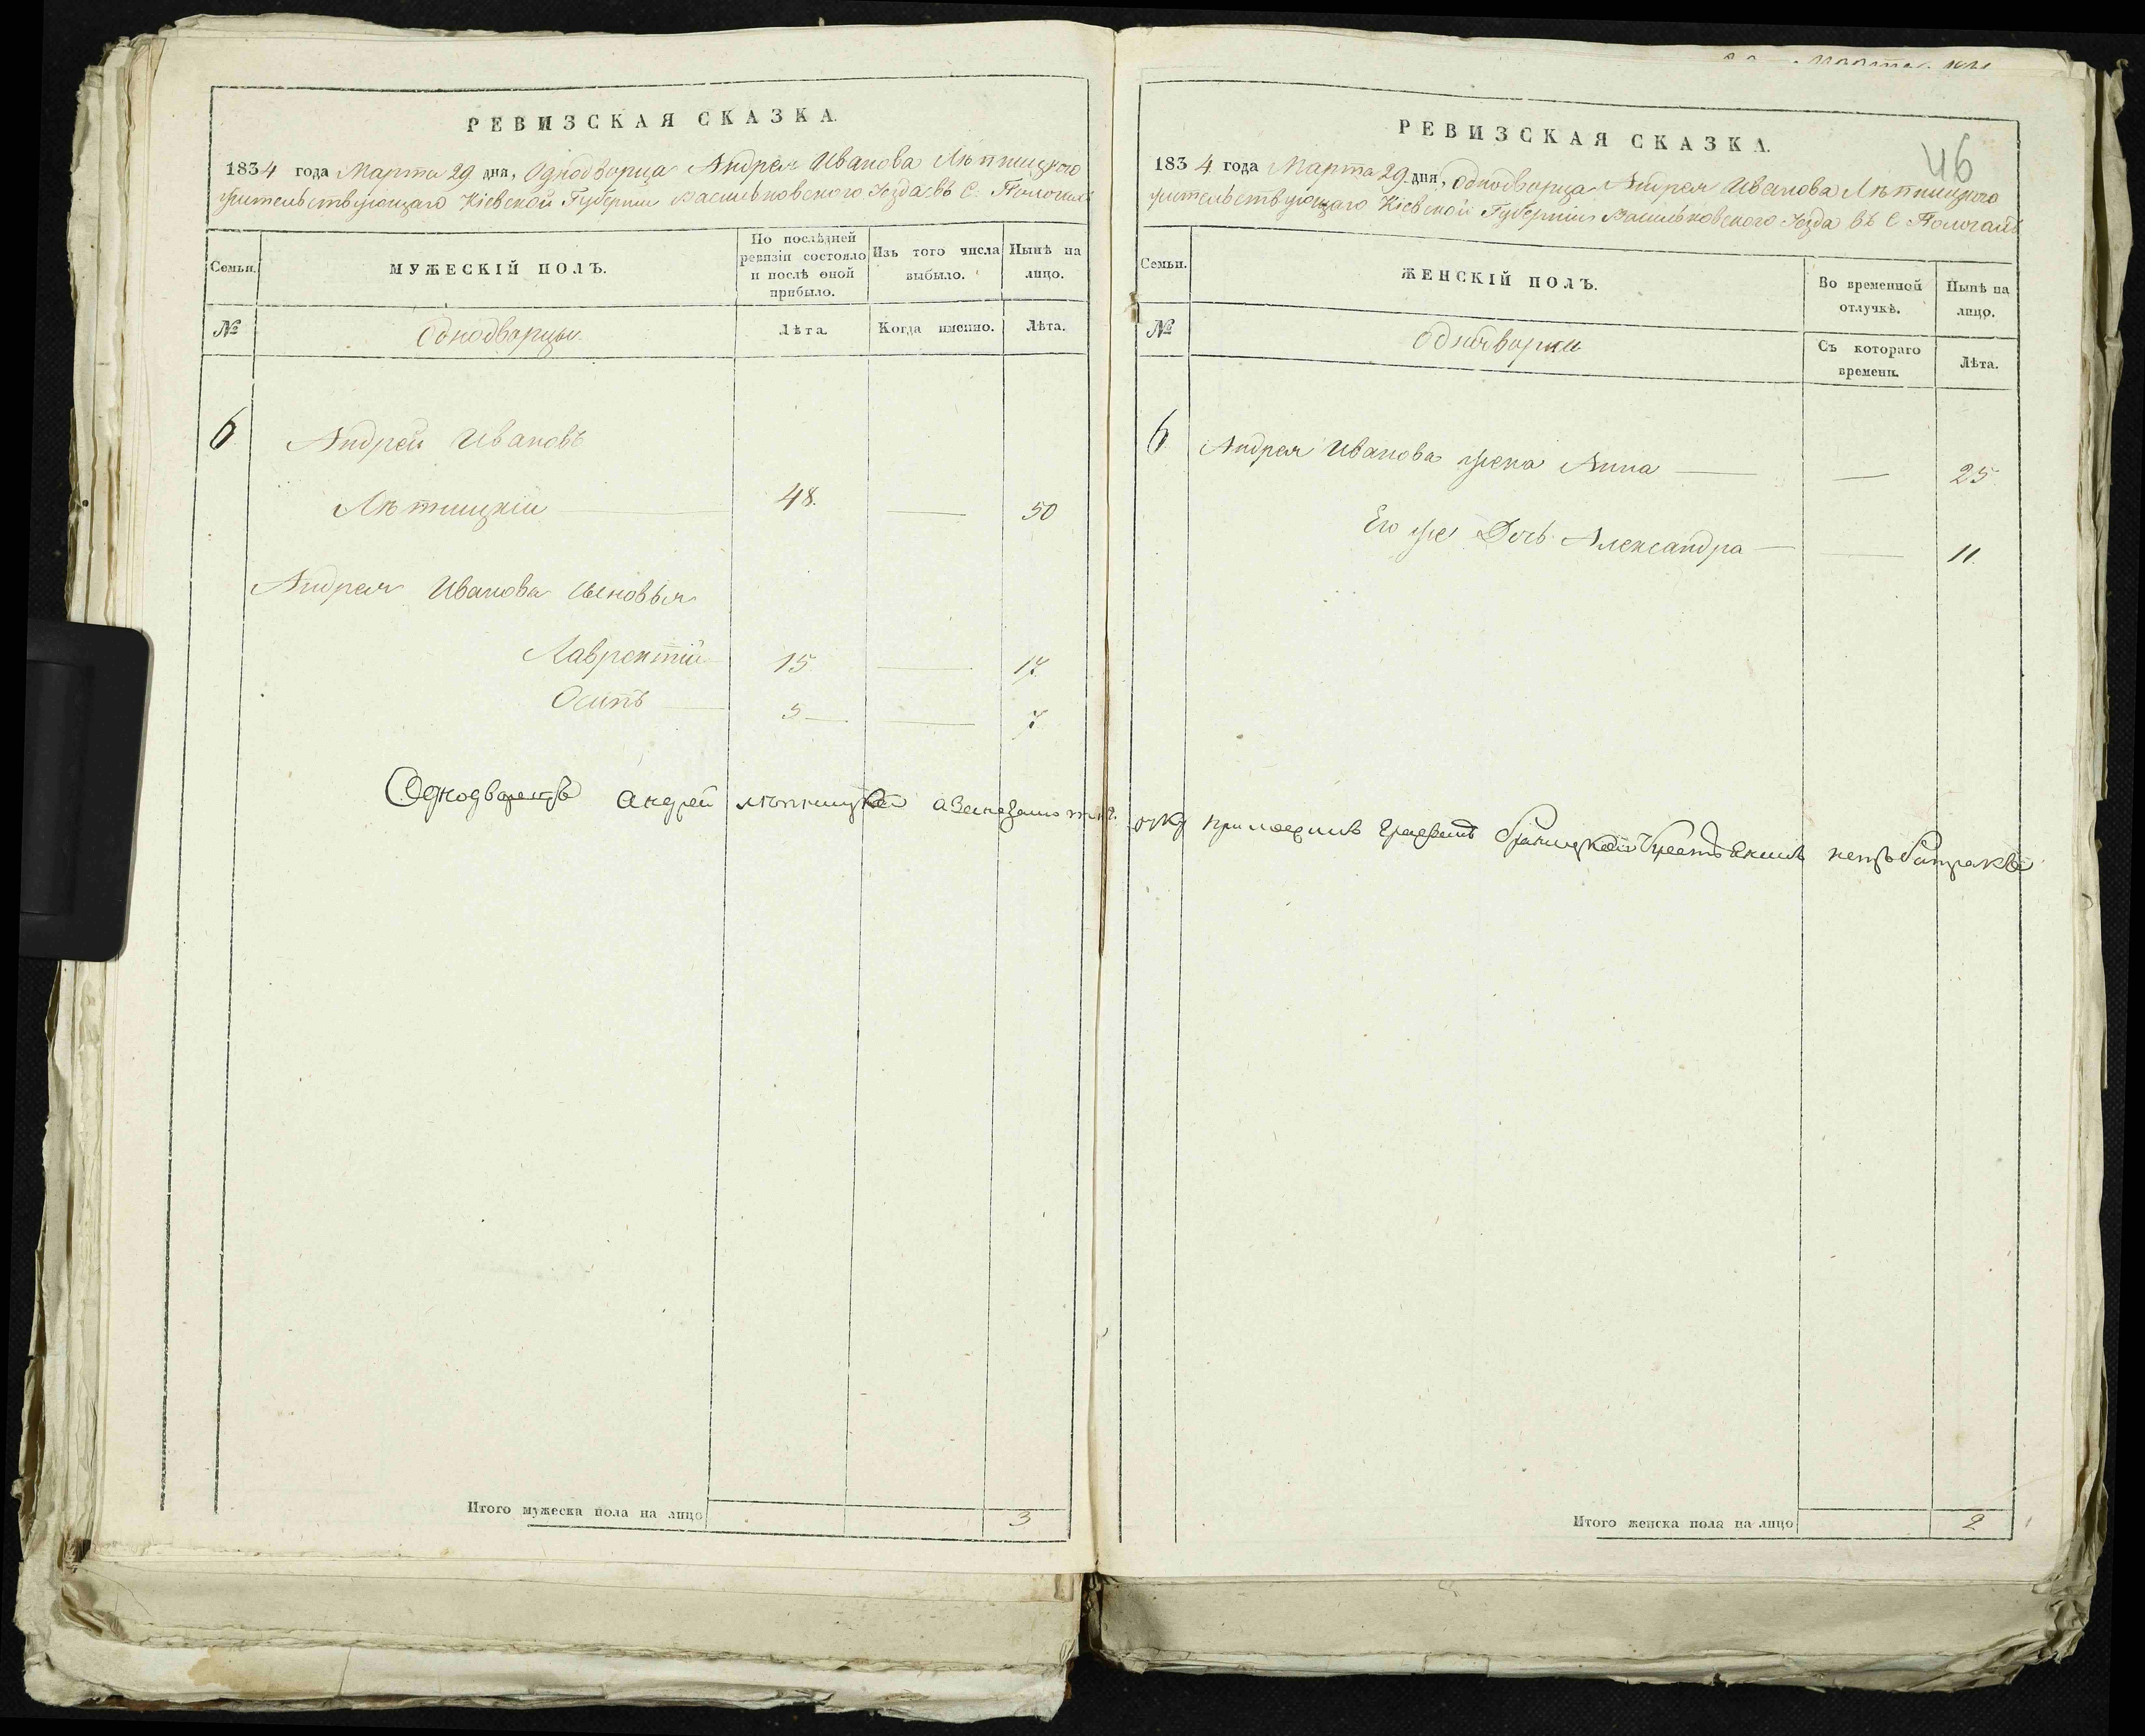 РЕВИЗСКАЯ СКАЗКА.
1834 года Марта 29 дня, Однодворца Андрея Иванова
жительствующаго Кіевской Губерніи Васильковского Уезда въ С.
Семьи.
МУЖЕСКІЙ ПОЛЪ.
По послѣдней ревизіи состояло и послѣ оной прибыло.
Изъ того числа выбыло.
Нынѣ на лицо.
№
Однодворцы.
Лѣта.
Когда именно.
Лѣта.
6
Андрей Ивановъ
48. 50
Андрея Иванова сыновья
Лаврентій 15 17.
Осипъ 5 7
Однодворецъ андрей
Итого мужеска пола на лицо 3
46
РЕВИЗСКАЯ СКАЗКА.
1834 года Марта 29 дня, однодворца Андрея Иванова
жительствующаго Кіевской Губерніи Васильковского Уезда въ С
Семьи.
ЖЕНСКІЙ ПОЛЪ.
Во временной отлучкѣ.
Нынѣ на лицо.
№
однодворки
Съ котораго времени.
Лѣта.
6
Андрея Иванова жена Анна 25
Его же Дочь Александра 11.
Итого женска пола на лицо 2